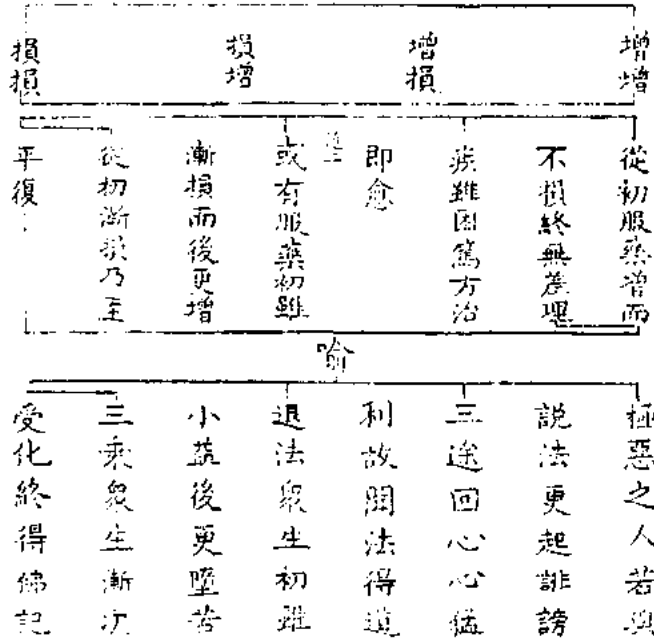 增增
增損
損增
損損
從初服藥增而
不損終無差理
疾雖困篤方治
即愈
或有服藥初雖
漸損而後更增
從初漸損乃至
平復
喻
極惡之人若與
說法更起誹謗
三途回心心猛
利故聞法得道
退法衆生初雖
小益後更墮苦
三乘衆生漸次
受化終得佛記